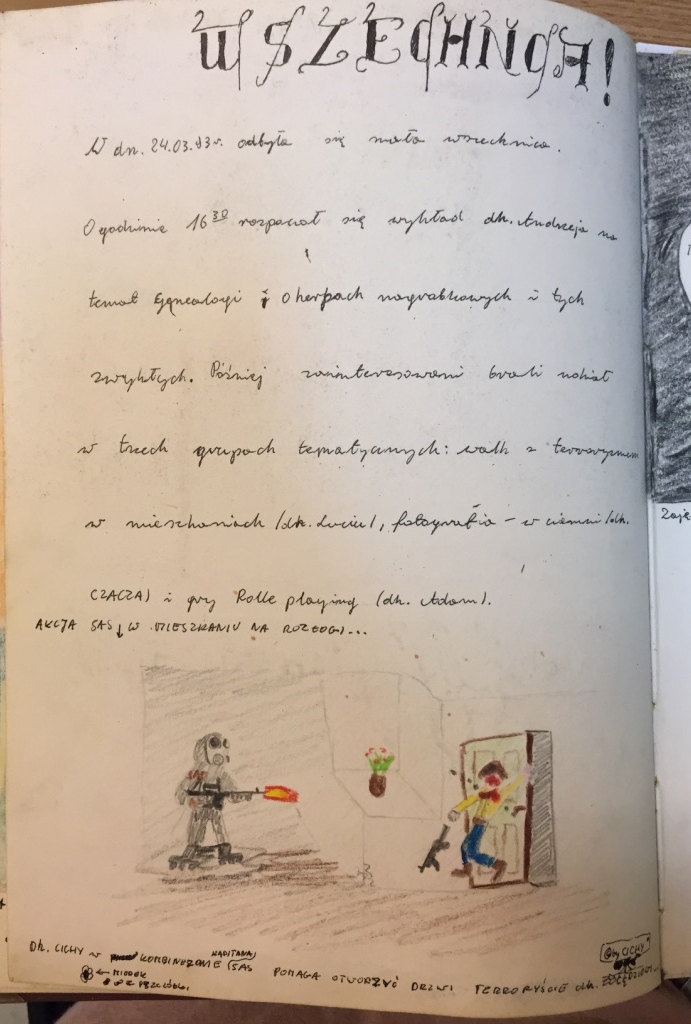 WSZECHNICA!
W dn. 24.03.93r. odbyła się mała wszechnica.
O godzinie 16³⁰ rozpoczął się wykład dh. Andrzeja na
temat genealogi i o herbach nagrobkowych i tych
zwykłych. Później zainteresowani brali udział
w trzech grupach tematycznych: walk z terroryzmem
w mieszkaniach (dh. Lucie), fotografia - w ciemni (dh.
CZACZA) i gry Rolle playing (dh. Adam).
AKCJA SAS↓W MIESZKANIU NA ROZŁOGI...
DH. CICHY W KOMBINEZONIE KAPITANA SAS POMAGA OTWORZYĆ DRZWI TERRORYŚCIE dh.
← MIODEK
PSZCZÓŁKI
by CICHY
Zaję